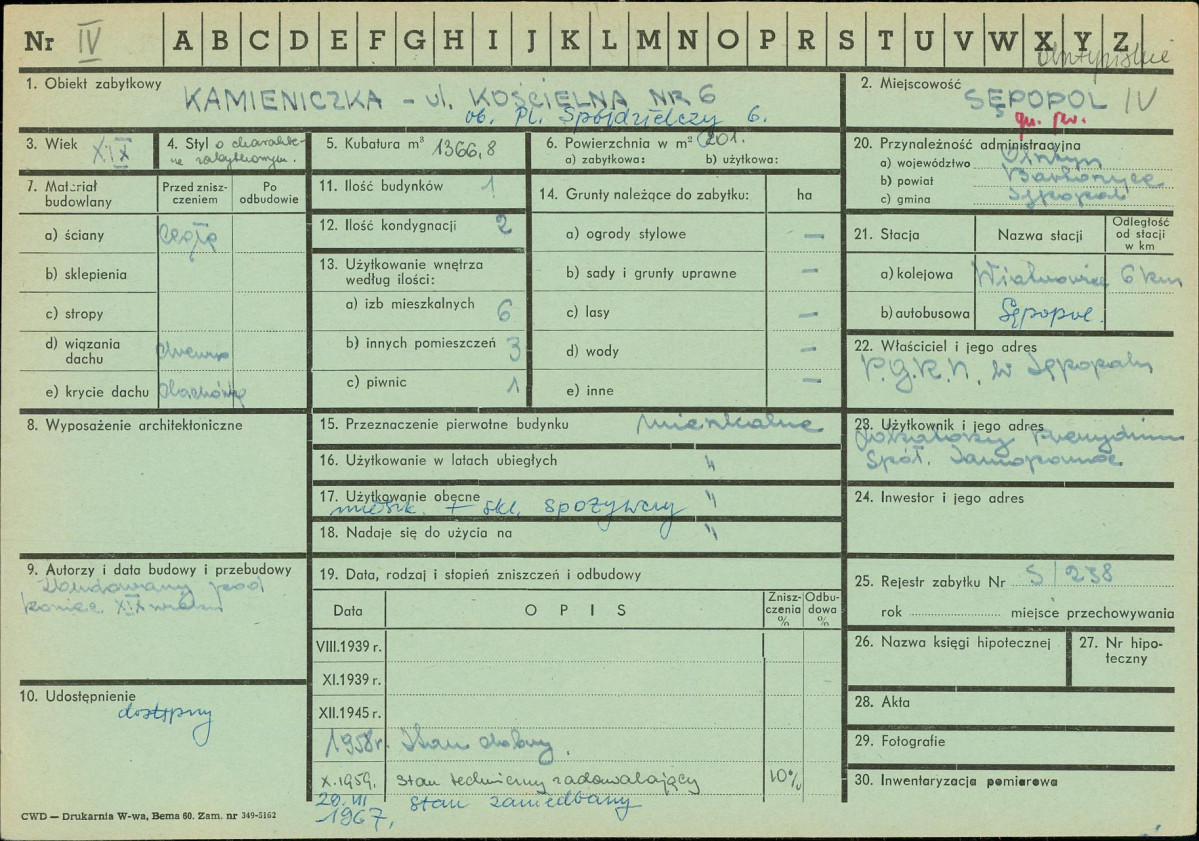 Nr IV A B C D E F G H I J K L M N O P R S T U V W X Y Z
olsztyńskie
1. Obiekt zabytkowy
KAMIENICZKA - ul. KOŚCIELNA NR 6
ob. Pl. Spółdzielczy 6.
2. Miejscowość
SĘPOPOL IV
3. Wiek XIX
4. Styl o charakte-
rze zabytkowym.
5. Kubatura m³ 1366,8
6. Powierzchnia w m² 201.
a) zabytkowa: b) użytkowa:
20. Przynależność administracyjna
a) województwo Olsztyn
b) powiat Bartoszyce
c) gmina Sępopol
7. Materiał budowlany
Przed znisz-
czeniem
Po
odbudowie
a) ściany cegła
b) sklepienia
c) stropy
d) wiązania
dachu drewno
e) krycie dachu dachówka
11. Ilość budynków 1
12. Ilość kondygnacji 2
13. Użytkowanie wnętrza
według ilości:
a) izb mieszkalnych 6
b) innych pomieszczeń 3
c) piwnic 1
14. Grunty należące do zabytku: ha
a) ogrody stylowe —
b) sady i grunty uprawne —
c) lasy —
d) wody —
e) inne —
21. Stacja Nazwa stacji
Odległość
od stacji
w km
a) kolejowa Wiatrowiec 6 km
b) autobusowa Sępopol.
22. Właściciel i jego adres
P.G.R.N. w Sępopolu
8. Wyposażenie architektoniczne
15. Przeznaczenie pierwotne budynku mieszkalne
16. Użytkowanie w latach ubiegłych "
17. Użytkowanie obecne "
mieszk. + skl. spożywczy
18. Nadaje się do użycia na "
23. Użytkownik i jego adres
Lokatorzy Prezydium
Spół. Samopomoc
24. Inwestor i jego adres
9. Autorzy i data budowy i przebudowy
Zbudowany pod
koniec XIX wieku
19. Data, rodzaj i stopień zniszczeń i odbudowy
Data OPIS
Znisz-
czenia
%
Odbu-
dowa
%
VIII.1939 r.
XI.1939 r.
XII.1945 r.
1958 r. Stan dobry.
X.1959. stan techniczny zadowalający 10%
20.VII
1967, stan zaniedbany
25. Rejestr zabytku Nr S/238
rok miejsce przechowywania
26. Nazwa księgi hipotecznej
27. Nr hipo-
teczny
10. Udostępnienie
dostępny
28. Akta
29. Fotografie
30. Inwentaryzacja pomiarowa
CWD — Drukarnia W-wa, Bema 60. Zam. nr 349-5162